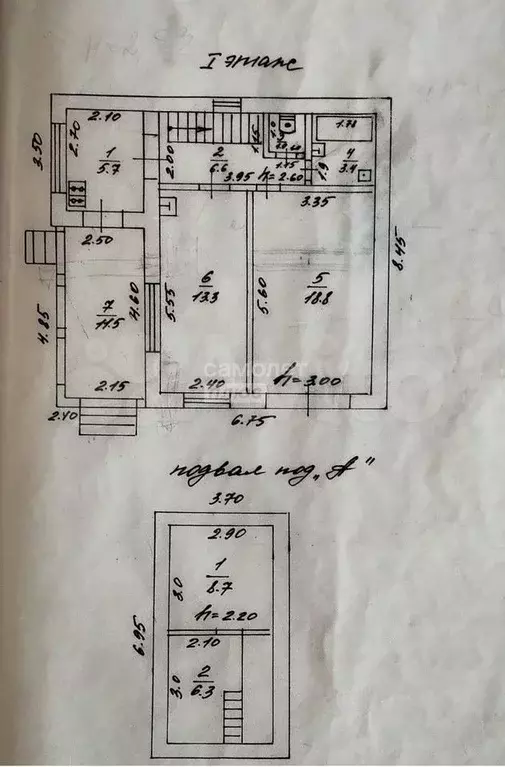 I этаж
2.10
2.70
1
5.7
3.50
2.00
2
6.6
3.95
1.45
1.0
1.75
h=2.60
1.78
1.9
4
3.4
3.35
2.50
7
11.5
4.60
4.85
2.15
2.40
6
13.3
5.55
2.40
5
18.8
5.60
h=3.00
8.45
6.75
самолет
плюс
подвал под „А"
3.70
2.90
1
8.7
3.0
h=2.20
6.95
2.10
2
6.3
3.0